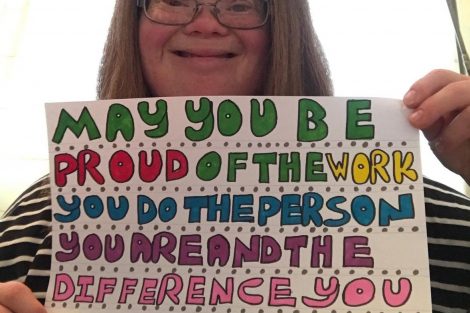 MAY YOU BE
PROUD OF THE WORK
YOU DO THE PERSON
YOU ARE AND THE
DIFFERENCE YOU